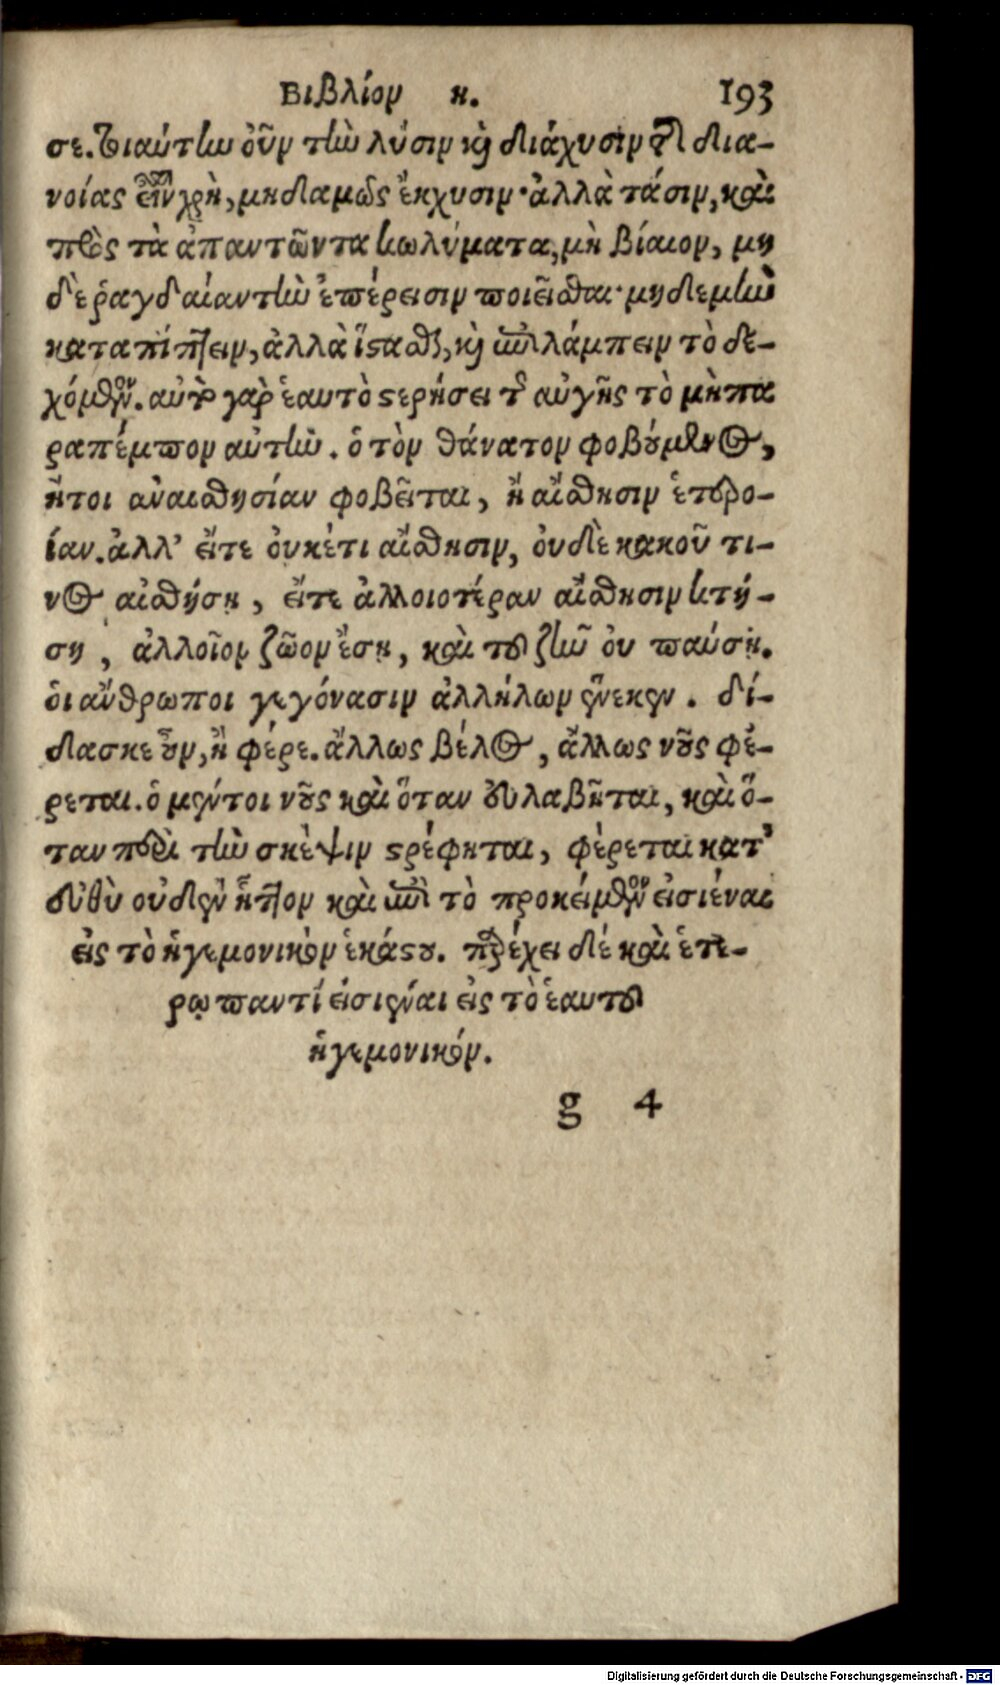 Βιβλίον η. 193
σε. τοιαύτην οὖν τὴν λύσιν καὶ διάχυσιν τῆς δια-
νοίας εἶναι χρὴ, μηδαμῶς ἔκχυσιν· ἀλλὰ τάσιν, καὶ
πρὸς τὰ ἀπαντῶντα κωλύματα, μὴ βίαιον, μη
δὲ ῥαγδαίαν τὴν ἐπέρεισιν ποιεῖσθαι· μηδὲ μὴν
καταπίπτειν, ἀλλὰ ἵστασθαι, καὶ ἐπιλάμπειν τὸ δε-
χόμενον. αὐτὸ γὰρ ἑαυτὸ στερήσει τῆς αὐγῆς τὸ μὴ πα
ραπέμπον αὐτήν. ὁ τὸν θάνατον φοβούμενος,
ἤτοι ἀναισθησίαν φοβεῖται, ἢ αἴσθησιν ἑτερο-
ίαν. ἀλλ' εἴτε οὐκέτι αἴσθησιν, οὐδὲ κακοῦ τι-
νος αἰσθήση, εἴτε ἀλλοιοτέραν αἴσθησιν κτή-
ση, ἀλλοῖον ζῶον ἔση, καὶ τοῦ ζῆν οὐ παύση.
ὁι ἄνθρωποι γεγόνασιν ἀλλήλων ἕνεκεν. δί-
δασκε οὖν, ἢ φέρε. ἄλλως βέλος, ἄλλως νοῦς φέ-
ρεται. ὁ μέντοι νοῦς καὶ ὅταν εὐλαβῆται, καὶ ὅ-
ταν περὶ τὴν σκέψιν στρέφηται, φέρεται κατ'
εὐθὺ οὐδὲν ἧττον καὶ ἐπὶ τὸ προκείμενον εἰσιέναι
εἰς τὸ ἡγεμονικὸν ἑκάστου. παρέχει δὲ καὶ ἑτέ-
ρῳ παντί εἰσιέναι εἰς τὸ ἑαυτοῦ
ἡγεμονικόν.
g 4
Digitalisierung gefördert durch die Deutsche Forschungsgemeinschaft - DFG